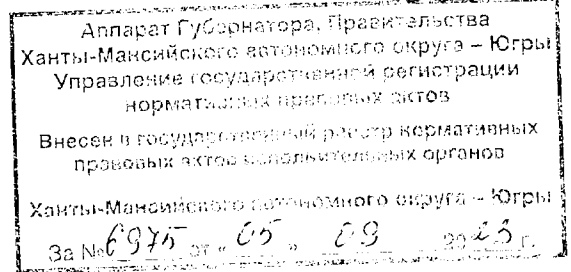 Аппарат Губернатора, Правительства
Ханты-Мансийского автономного округа – Югры
Управление государственной регистрации
нормативных правовых актов
Внесен в государственный реестр нормативных
правовых актов исполнительных органов
Ханты-Мансийского автономного округа – Югры
За № 6975 от « 05 » 09 2023 г.